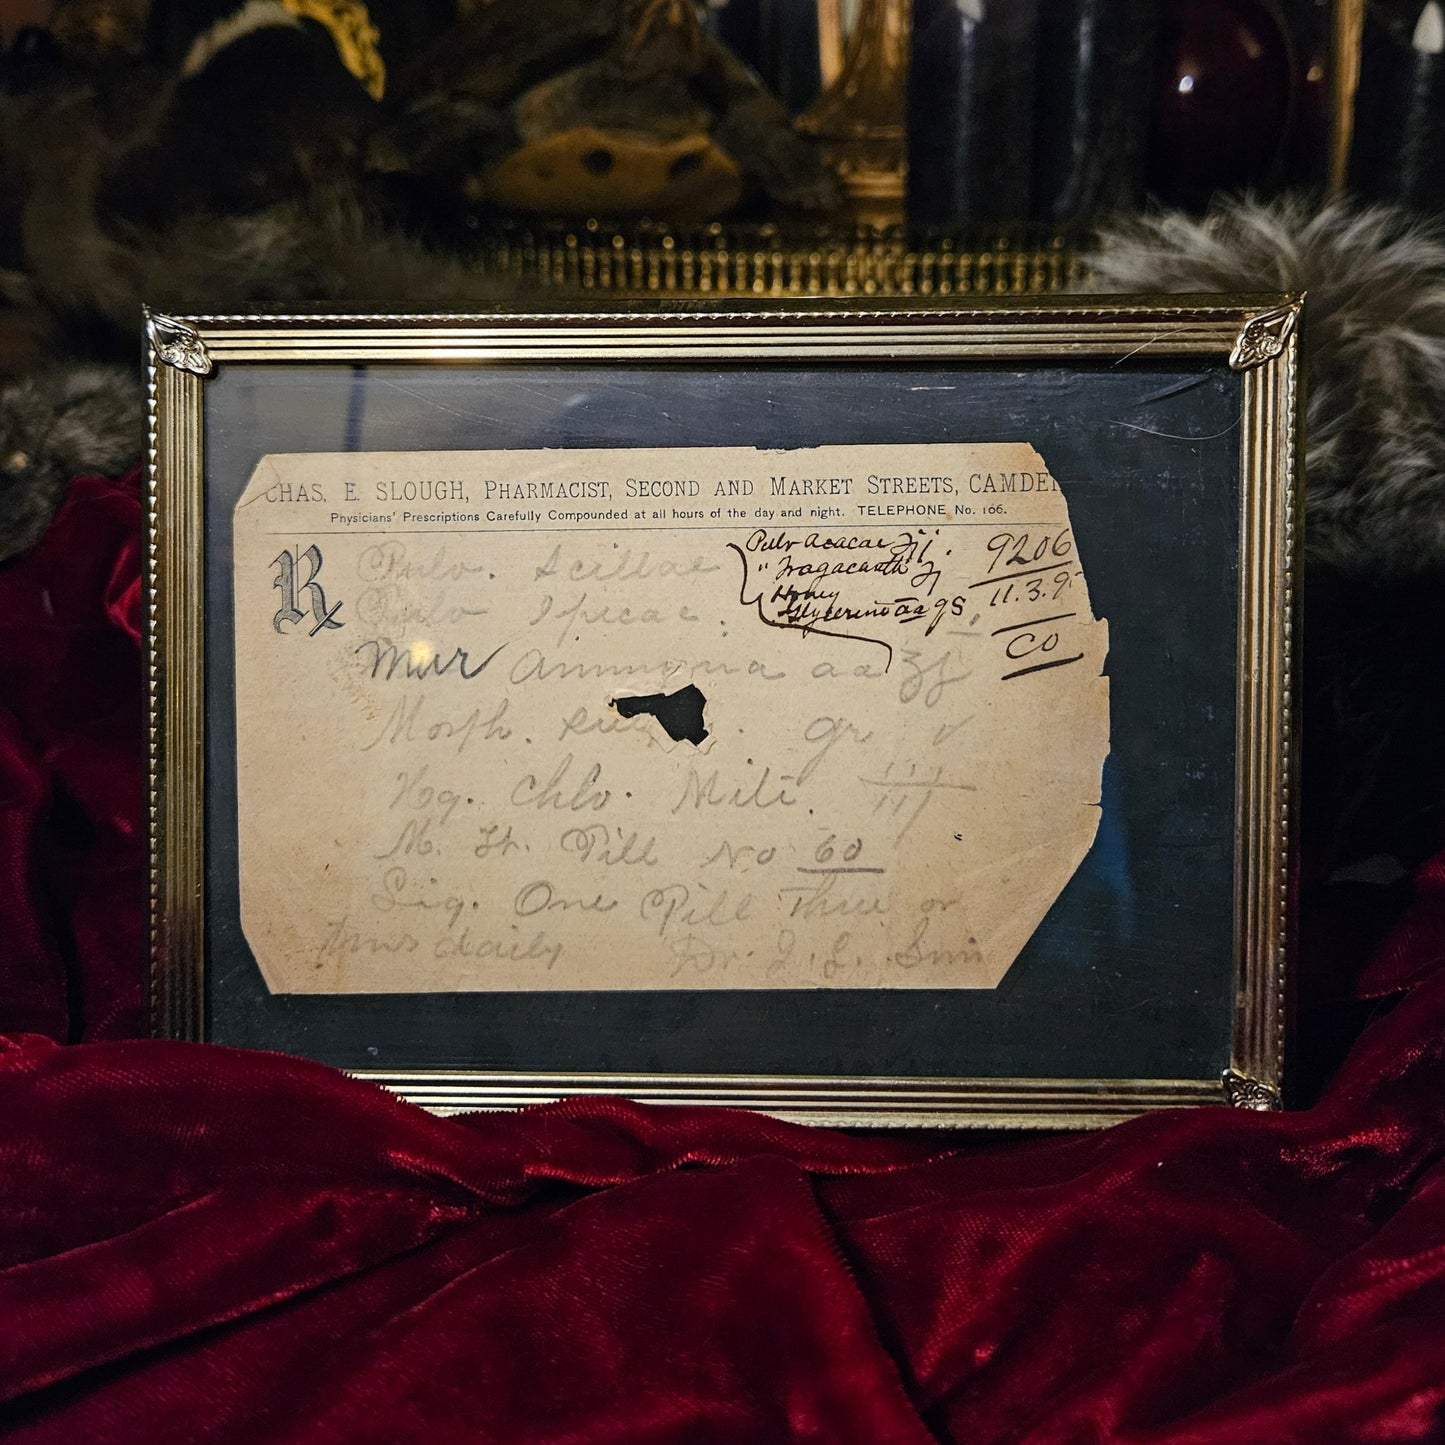 CHAS. E. SLOUGH, PHARMACIST, SECOND AND MARKET STREETS, CAMDEN
Physicians' Prescriptions Carefully Compounded at all hours of the day and night. TELEPHONE No. 166.
Rx
Pulv. Scillae
Pulv Ipecac.
Mur Ammonia aa ʒj
Morph. gr v
Hg. Chlo. Miti.
M. Ft. Pill No 60
Sig. One Pill Three or
times daily Dr. J. L.
Pulv Acacae ʒij.
" Tragacanth ʒj
Honey
Glycerine aa qs
9206
11.3.9
CO